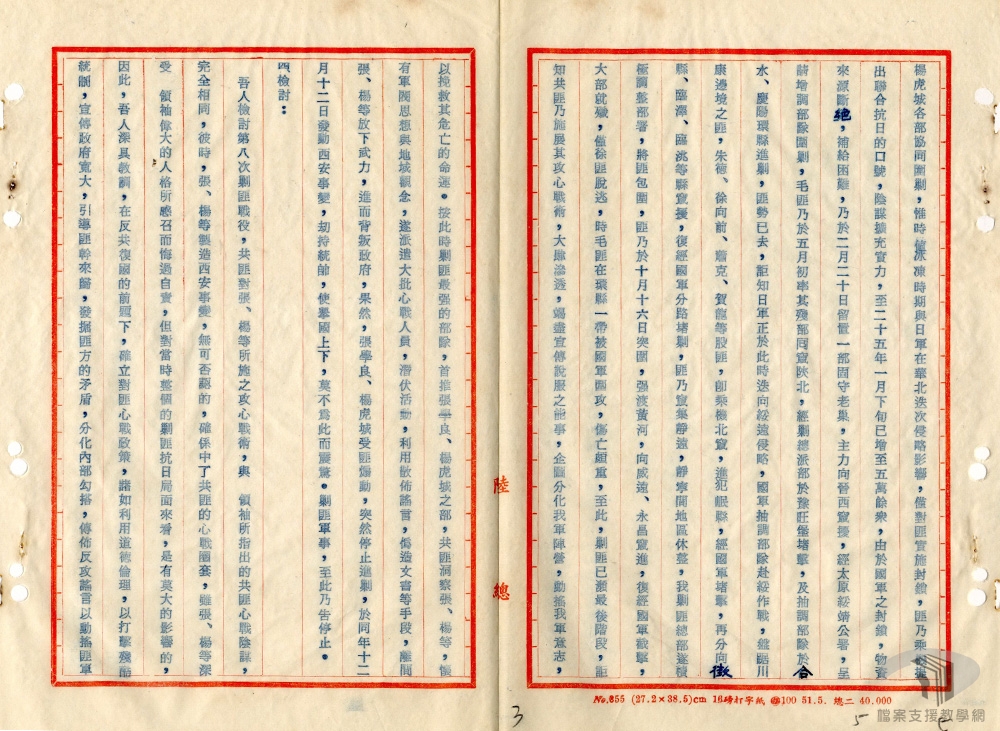 楊虎城各部協同圍剿，惟時值冰凍時期與日軍在華北迭次侵略影響，僅對匪實施封鎖，匪乃乘
出聯合抗日的口號，陰謀擴充實力，至二十五年一月下旬已增至五萬餘眾，由於國軍之封鎖，物資
來源斷絕，補給困難，乃於二月二十日留置一部固守老巢，主力向晉西竄擾，經太原綏靖公署，呈
請增調部隊圍剿，毛匪乃於五月初率其殘部回竄陝北，經剿總派部於豫旺堡堵擊，及抽調部隊於合
水、慶陽環縣進剿，匪勢已去，詎知日軍正於此時迭向綏遠侵略，國軍抽調部隊赴綏作戰，盤踞川
康邊境之匪，朱德、徐向前、蕭克、賀龍等股匪，即乘機北竄，進犯岷縣，經國軍堵擊，再分向徽
縣、臨潭、臨洮等縣竄擾，復經國軍分路堵剿，匪乃竄集靜遠，靜寧間地區休整，我剿匪總部遂積
極調整部署，將匪包圍，匪乃於十月十六日突圍，强渡黃河，向威遠、永昌竄進，復經國軍截擊，
大部就殲，僅徐匪脫逃，時毛匪在環縣一帶被國軍圍攻，傷亡頗重，至此，剿匪已瀕最後階段，詎
知共匪乃施展其攻心戰術，大肆滲透，竭盡宣傳說服之能事，企圖分化我軍陣營，動搖我軍意志，
以挽救其危亡的命運。按此時剿匪最强的部隊，首推張學良、楊虎城之部，共匪洞察張、楊等，懷
有軍閥思想與地域觀念，遂派遣大批心戰人員，潛伏活動，利用散佈謠言，偽造文書等手段，離間
張、楊等放下武力，進而背叛政府，果然，張學良、楊虎城受匪煽動，突然停止進剿，於同年十二
月十二日發動西安事變，劫持統帥，使舉國上下，莫不為此而震驚。剿匪軍事，至此乃告停止。
四檢討：
吾人檢討第八次剿匪戰役，共匪對張、楊等所施之攻心戰術，與　領袖所指出的共匪心戰陰謀，
完全相同，彼時，張、楊等製造西安事變，無可否認的，確係中了共匪的心戰圈套，雖張、楊等深
受　領袖偉大的人格所感召而悔過自責，但對當時整個的剿匪抗日局面來看，是有莫大的影響的，
因此，吾人深具教訓，在反共復國的前題下，確立對匪心戰政策，諸如利用道德倫理，以打擊殘酷
統制，宣傳政府寬大，引導匪幹來歸，發掘匪方的矛盾，分化內部勾搭，傳佈反攻謠言以動搖匪軍
陸總
No.655 (27.2×38.5)cm 16磅打字紙 @100 51.5. 總二 40,000
3
5
檔案支援教學網